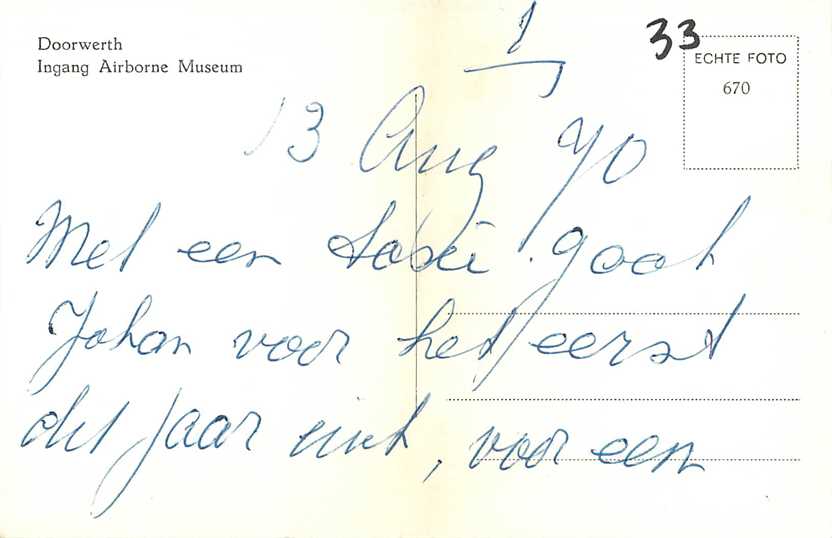 Doorwerth
Ingang Airborne Museum
1
33
ECHTE FOTO
670
13 Aug 70
Met een taxi gaat
Johan voor het eerst
dit jaar uit, voor een